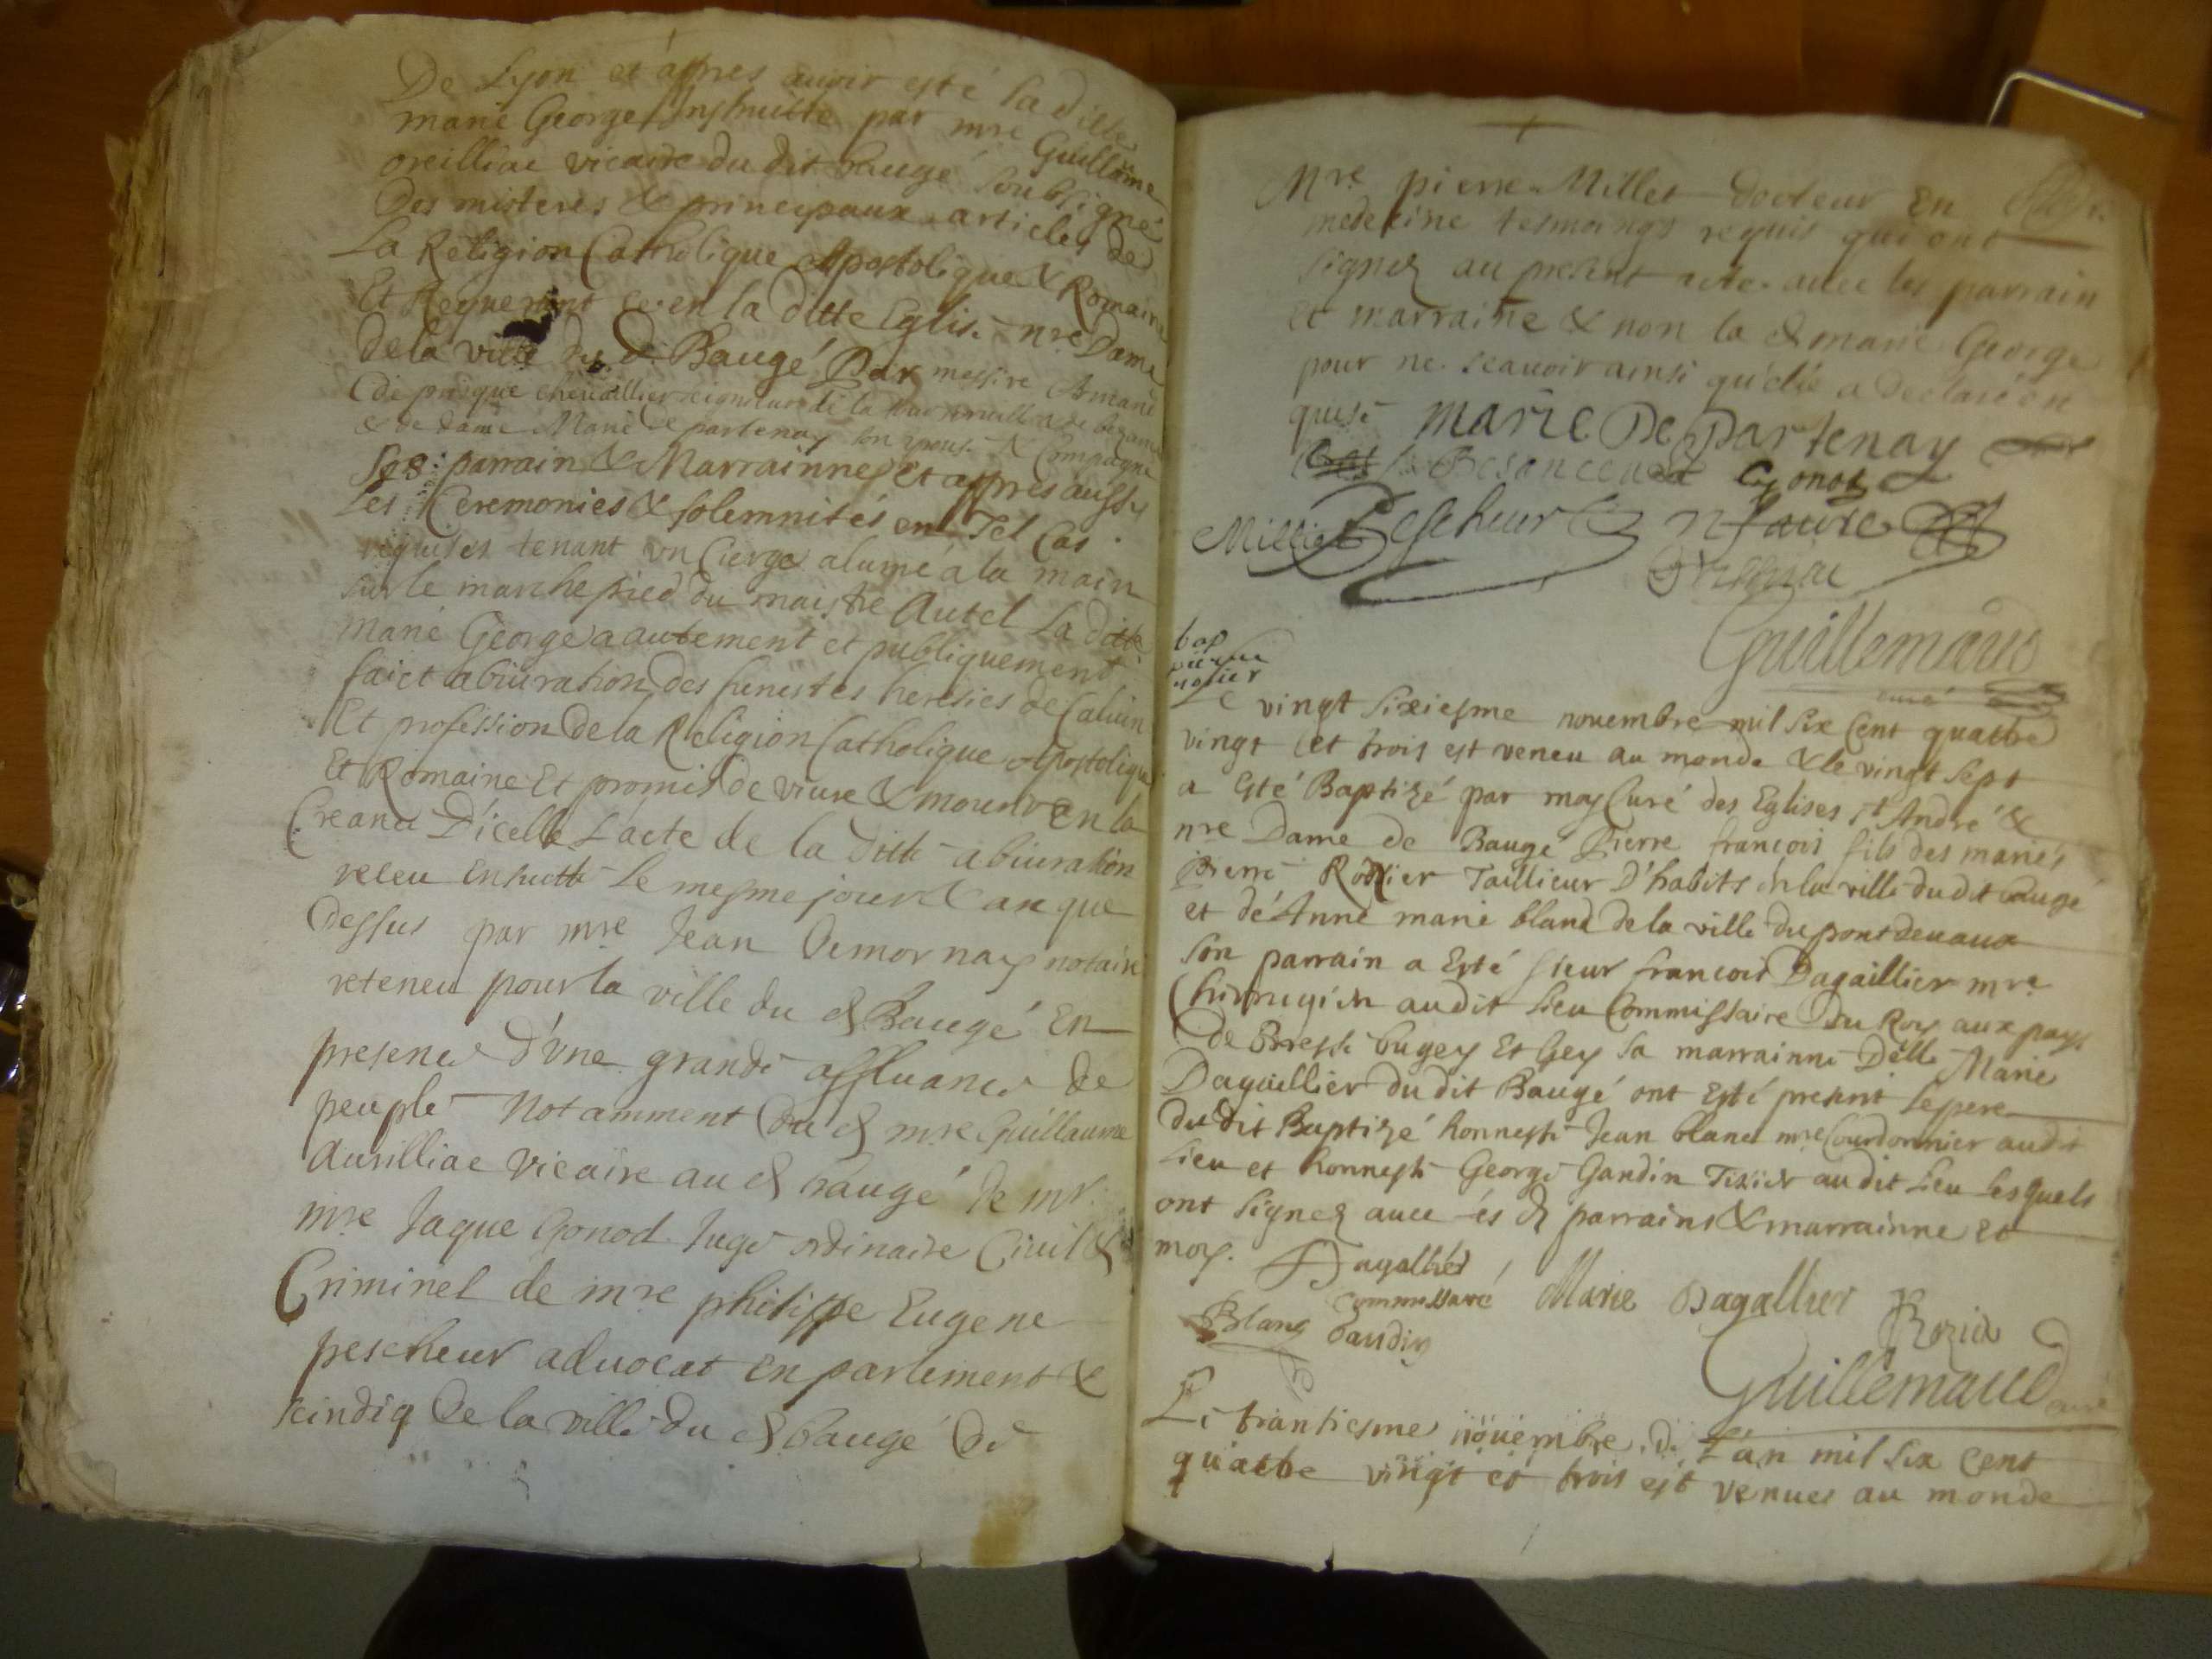 De Lyon et aspres auoir esté la ditte
marie George Instruitte par mre Guillaume
oreilliac vicaire du dit baugé soubsigné
Des misteres & principaux articles de
La Religion Catholique Apostolique & Romaine
Et Requerant ce en la ditte Eglise nre Dame
De la ville du d Baugé Par messire Armand
De prisque cheuallier seigneur de la
& de dame Marie de partenay son epouse & Compagne
Ses parrain & Marrainne Et aspres aussy
Les Ceremonies & solemnités en Tel Cas
requises tenant vn Cierge alumé a la main
sur le marchepied du maistre Autel La ditte
marie George a autement et publiquement
faict abiuration des funestes heresies de Caluin
Et profession de la Religion Catholique Apostolique
Et Romaine Et promis de viure & mourir en la
Creance D'icelle L'acte de la ditte abiuration
receu Ensuitte le mesme jour & an que
Dessus par mre Jean Demornay notaire
reteneu pour la ville du d Baugé En
presence d'vne grande affluance de
peuple Notamment du d mre Guillaume
Aurilliac vicaire au d baugé de mr
mre Jaque Gonod Juge ordinaire Ciuil &
Criminel de mre philippe Eugene
pescheur aduocat en parlement &
scindiq de la ville du d baugé de
Mre pierre Millet docteur En
medecine tesmoings requis qui ont
signez au present acte auec les parrain
et marraine & non la d marie George
pour ne scauoir ainsi qu'elle a declaré en
quise Marie De Partenay
Besanceuil Gonod
Millet Pescheur n faure
Orilliac
Guillemaud
curé
bap
pierre
rosier
Le vingt sixiesme nouembre mil six Cent quattre
vingt et trois est veneu au monde & le vingt sept
a Esté Baptizé par moy Curé des Eglises st André &
nre Dame de Baugé Pierre francois fils des mariés
pierre Rozier Taillieur D'habits en la ville du dit baugé
et de Anne marie bland de la ville du pontdeuaux
son parrain a Esté sieur francois Dagaillier mre
Chirurgien audit lieu Commissaire Du Roy aux pays
De Bresse bugey Et Gey sa marrainne Delle Marie
Dagaillier du dit Baugé ont Esté present le pere
du dit Baptizé honneste Jean blanc mre Courdonnier audit
lieu et honneste George Gandin Tixier audit lieu lesquels
ont signez auec les d parrains & marrainne et
moy. Dagallier
commissaire Marie Dagallier Rozier
Blanc Gandin
Guillemaud curé
Le trantiesme nouembre de l'an mil six cent
quattre vingt et trois est venues au monde